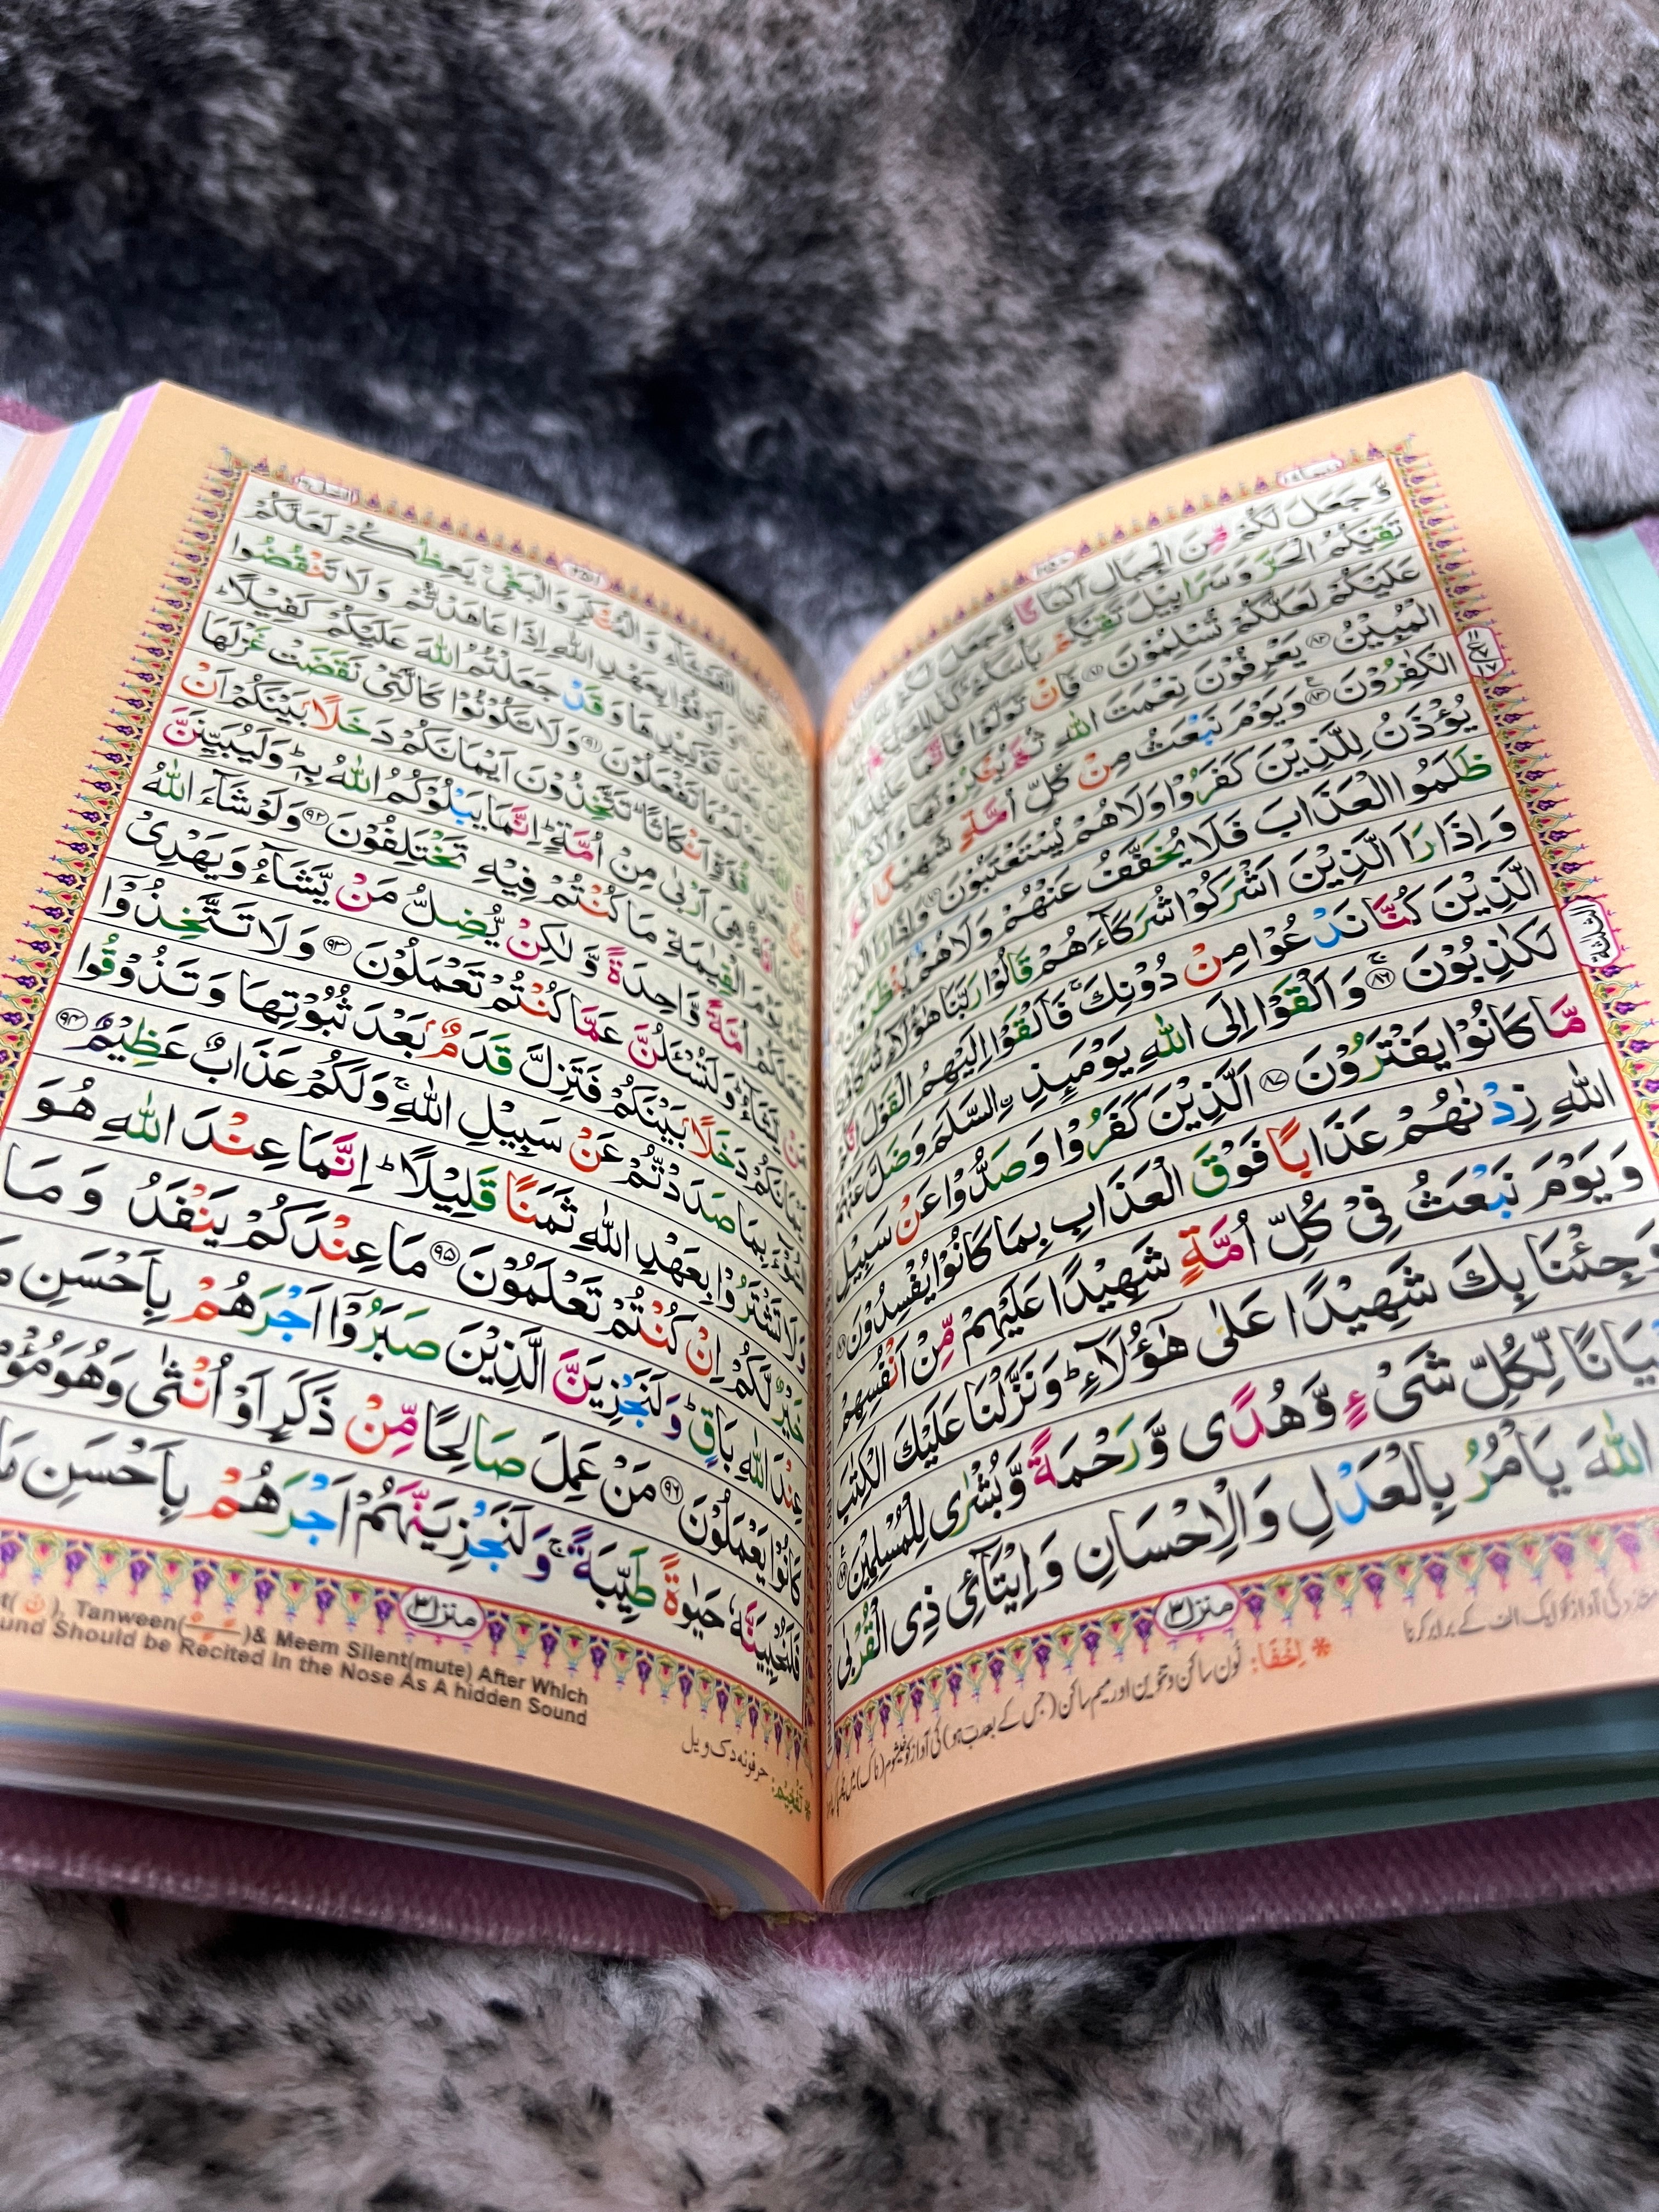 وَّ جَعَلَ لَكُمْ مِّنَ الْجِبَالِ اَكْنَانًا وَّ جَعَلَ لَكُمْ
تَقِيْكُمُ الْحَرَّ وَ سَرَابِيْلَ تَقِيْكُمْ بَاْسَكُمْ
عَلَيْكُمْ لَعَلَّكُمْ تُسْلِمُوْنَ ۸۱ فَاِنْ تَوَلَّوْا فَاِنَّمَا عَلَيْكَ
الْمُبِيْنُ ۸۲ يَعْرِفُوْنَ نِعْمَتَ اللّٰهِ ثُمَّ يُنْكِرُوْنَهَا وَ
الْكٰفِرُوْنَ ۸۳ وَيَوْمَ نَبْعَثُ مِنْ كُلِّ اُمَّةٍ شَهِيْدًا
يُؤْذَنُ لِلَّذِيْنَ كَفَرُوْا وَلَا هُمْ يُسْتَعْتَبُوْنَ ۸۴ وَاِذَا رَاَ الَّذِيْنَ
ظَلَمُوا الْعَذَابَ فَلَا يُخَفَّفُ عَنْهُمْ وَلَا هُمْ يُنْظَرُوْنَ
وَاِذَا رَاَ الَّذِيْنَ اَشْرَكُوْا شُرَكَآءَهُمْ قَالُوْا رَبَّنَا هٰٓؤُلَآءِ شُرَكَآؤُنَا
الَّذِيْنَ كُنَّا نَدْعُوْا مِنْ دُوْنِكَ ۚ فَاَلْقَوْا اِلَيْهِمُ الْقَوْلَ اِنَّكُمْ
لَكٰذِبُوْنَ ۸۶ وَاَلْقَوْا اِلَى اللّٰهِ يَوْمَئِذِ ِۨالسَّلَمَ وَضَلَّ عَنْهُمْ
مَّا كَانُوْا يَفْتَرُوْنَ ۸۷ اَلَّذِيْنَ كَفَرُوْا وَصَدُّوْا عَنْ سَبِيْلِ
اللّٰهِ زِدْنٰهُمْ عَذَابًا فَوْقَ الْعَذَابِ بِمَا كَانُوْا يُفْسِدُوْنَ ۸۸
وَيَوْمَ نَبْعَثُ فِيْ كُلِّ اُمَّةٍ شَهِيْدًا عَلَيْهِمْ مِّنْ اَنْفُسِهِمْ
وَجِئْنَا بِكَ شَهِيْدًا عَلٰى هٰٓؤُلَآءِ ؕ وَنَزَّلْنَا عَلَيْكَ الْكِتٰبَ
تِبْيَانًا لِّكُلِّ شَيْءٍ وَّهُدًى وَّرَحْمَةً وَّبُشْرٰى لِلْمُسْلِمِيْنَ ۸۹
اللّٰهَ يَاْمُرُ بِالْعَدْلِ وَالْاِحْسَانِ وَاِيْتَآئِ ذِي الْقُرْبٰى
منزل ۳
* اِخْفَا: نون ساکن و تنوین اور میم ساکن (جس کے بعد ب ہو) کی آواز کو خیشوم (ناک) میں
الْفَحْشَآءِ وَ الْمُنْكَرِ وَ الْبَغْيِ ۚ يَعِظُكُمْ لَعَلَّكُمْ
اَوْفُوْا بِعَهْدِ اللّٰهِ اِذَا عَاهَدْتُّمْ وَ لَا تَنْقُضُوا
تَوْكِيْدِهَا وَ قَدْ جَعَلْتُمُ اللّٰهَ عَلَيْكُمْ كَفِيْلًا ؕ
يَعْلَمُ مَا تَفْعَلُوْنَ ۹۱ وَلَا تَكُوْنُوْا كَالَّتِيْ نَقَضَتْ غَزْلَهَا
قُوَّةٍ اَنْكَاثًا ؕ تَتَّخِذُوْنَ اَيْمَانَكُمْ دَخَلًۢا بَيْنَكُمْ اَنْ
هِيَ اَرْبٰى مِنْ اُمَّةٍ ؕ اِنَّمَا يَبْلُوْكُمُ اللّٰهُ بِهٖ ؕ وَلَيُبَيِّنَنَّ
الْقِيٰمَةِ مَا كُنْتُمْ فِيْهِ تَخْتَلِفُوْنَ ۹۲ وَلَوْ شَآءَ اللّٰهُ
لَجَعَلَكُمْ اُمَّةً وَّاحِدَةً وَّ لٰكِنْ يُّضِلُّ مَنْ يَّشَآءُ وَيَهْدِيْ
مَنْ يَّشَآءُ ؕ وَلَتُسْـَٔلُنَّ عَمَّا كُنْتُمْ تَعْمَلُوْنَ ۹۳ وَلَا تَتَّخِذُوْٓا
اَيْمَانَكُمْ دَخَلًۢا بَيْنَكُمْ فَتَزِلَّ قَدَمٌۢ بَعْدَ ثُبُوْتِهَا وَتَذُوْقُوا
السُّوْٓءَ بِمَا صَدَدْتُّمْ عَنْ سَبِيْلِ اللّٰهِ ۚ وَلَكُمْ عَذَابٌ عَظِيْمٌ ۹۴
وَلَا تَشْتَرُوْا بِعَهْدِ اللّٰهِ ثَمَنًا قَلِيْلًا ؕ اِنَّمَا عِنْدَ اللّٰهِ هُوَ
خَيْرٌ لَّكُمْ اِنْ كُنْتُمْ تَعْلَمُوْنَ ۹۵ مَا عِنْدَكُمْ يَنْفَدُ وَمَا
عِنْدَ اللّٰهِ بَاقٍ ؕ وَلَنَجْزِيَنَّ الَّذِيْنَ صَبَرُوْٓا اَجْرَهُمْ بِاَحْسَنِ
كَانُوْا يَعْمَلُوْنَ ۹۶ مَنْ عَمِلَ صَالِحًا مِّنْ ذَكَرٍ اَوْ اُنْثٰى وَهُوَ
فَلَنُحْيِيَنَّهٗ حَيٰوةً طَيِّبَةً ۚ وَلَنَجْزِيَنَّهُمْ اَجْرَهُمْ بِاَحْسَنِ
منزل ۳
Tanween( )& Meem Silent(mute) After Which
Should be Recited In the Nose As A hidden Sound
* تَفْخِیْم: